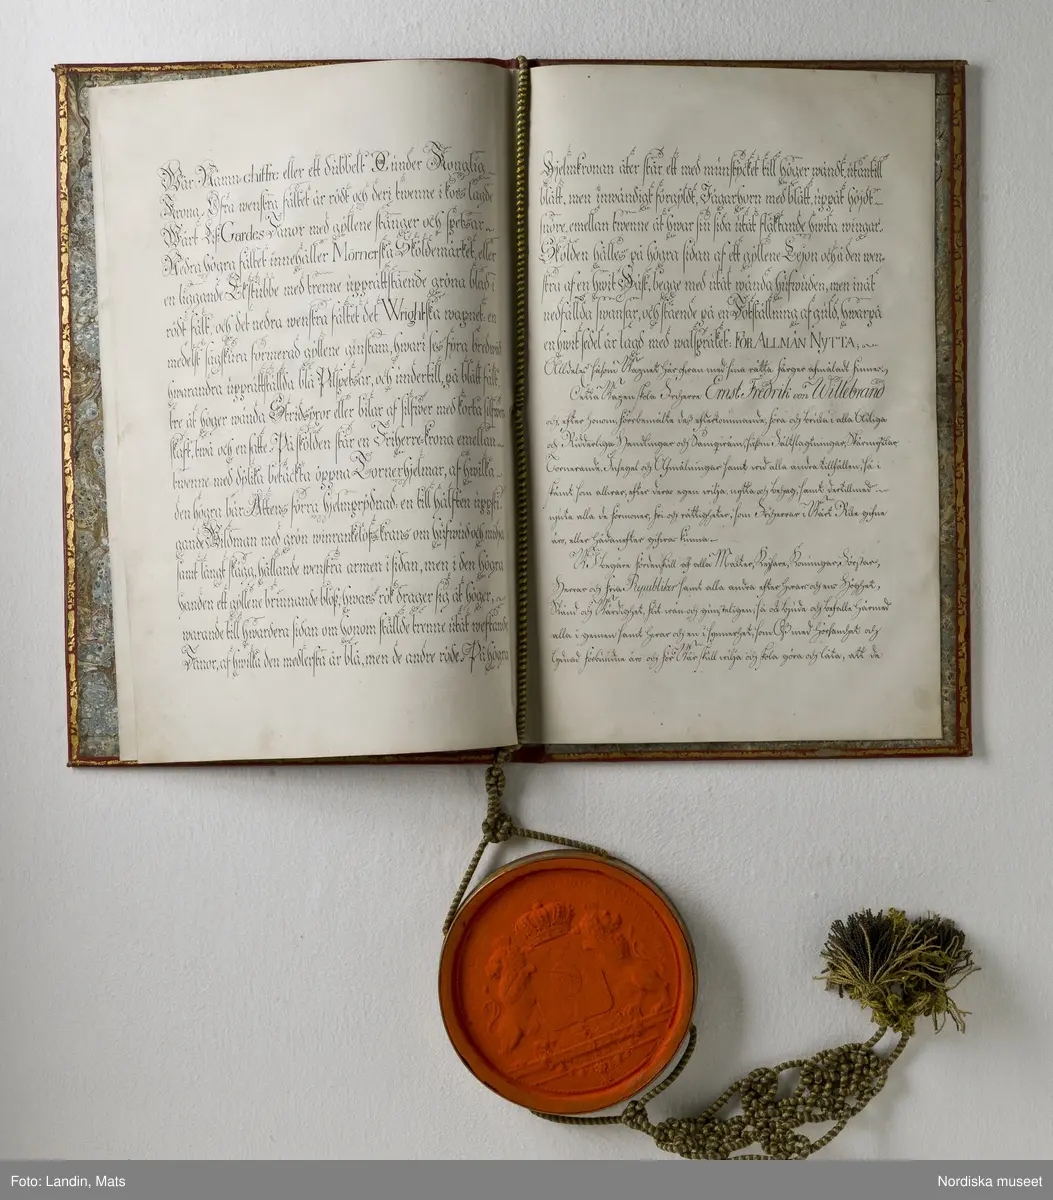 Wår Namn-chiffre eller ett dubbelt C under Konglig
Krona. Öfra wenstra fältet är rödt och deri twenne i kors lagde
Wårt Lif Gardes Fanor med gyllene stänger och spetsar.
Nedra högra fältet innehåller Mörnerska Sköldemärket, eller
en liggande Ekstubbe med trenne upprättstående gröna blad i
rödt fält, och det nedra wenstra fältet det Wrightska wapnet: en
medelst sågskura formerad gyllene ginstam, hwari ses fyra bredwid
hwarandra upprättställda blå Pilspetsar, och undertill, på blått fält,
tre åt höger wända Stridsyxor eller bilar af silfwer med korta silfwer
skaft, twå och en satte. På skölden står en Friherre-krona emellan
twenne med öpna Tornerhjelmar, af hwilka
den högra bär Ättens förra hjelmprydnad: en till hälften uppsti-
gande Wildman med grön winrankelöfs krans om hufwud och midja
samt långt skägg, hållande wenstra armen i sidan, men i den högra
handen ett gyllene brinnande bloss, hwars rök drager sig åt höger,
warande till hwardera sidan om honom ställde trenne utåt westande
Fanor, af hwilka den medlersta är blå, men de andre röde. På högra
Hjelmkronan åter står ett med munstycket till höger wändt, utantill
blått, men inwändigt förgyldt, Jägarhorn med blått, uppåt höjdt
snöre, emellan twenne åt hwar sin sida utåt fläktande hwita wingar.
Skölden hålles på högra sidan af ett gyllene Lejon och å den wen-
stra af en hwit Häst, begge med utåt wända hufwuden, men inåt
nedfällda swansar, och stående på en Fotställning af guld, hwarpå
en hwit sedel är lagd med walspråket: FÖR ALLMÄN NYTTA;
Alldeles såsom Wapnet här ofwan med sina rätta färger afmåladt finnes,
Detta Wapen skola Friherre Ernst Fredrik von Willebrand
och, efter honom, förbemälte dess efterkommande, föra och bruka i alla Adliga
och Ridderliga Handlingar och Samqväm, såsom Fältslagtningar, Skärmytslar
Tornerande, Insegel och Afmålningar samt wid alla andra tillfällen, så i
skämt som allwar, efter deras egen wilja, nytta och behag, samt dertillmed
njuta alla de förmoner, fri och rättigheter, som Friherrar i Wårt Rike gifne
äro, eller hädanefter gifwas kunna.
Wi begäre fördenskull af alla Makter, Kejsare, Konungar, Förstar,
Herrar och fria Republiker samt alla andra efter hwars och ens Höghet,
Stånd och Wärdighet, thet wän och gunsteligen, så ock bjude och befalle härmed
alla i gemen samt hwar och en i synnerhet, som Oss med hörsamhet och
lydnad förbundne äro och för Wår skull wilja och skola göra och låta, att de
Foto: Landin, Mats
Nordiska museet